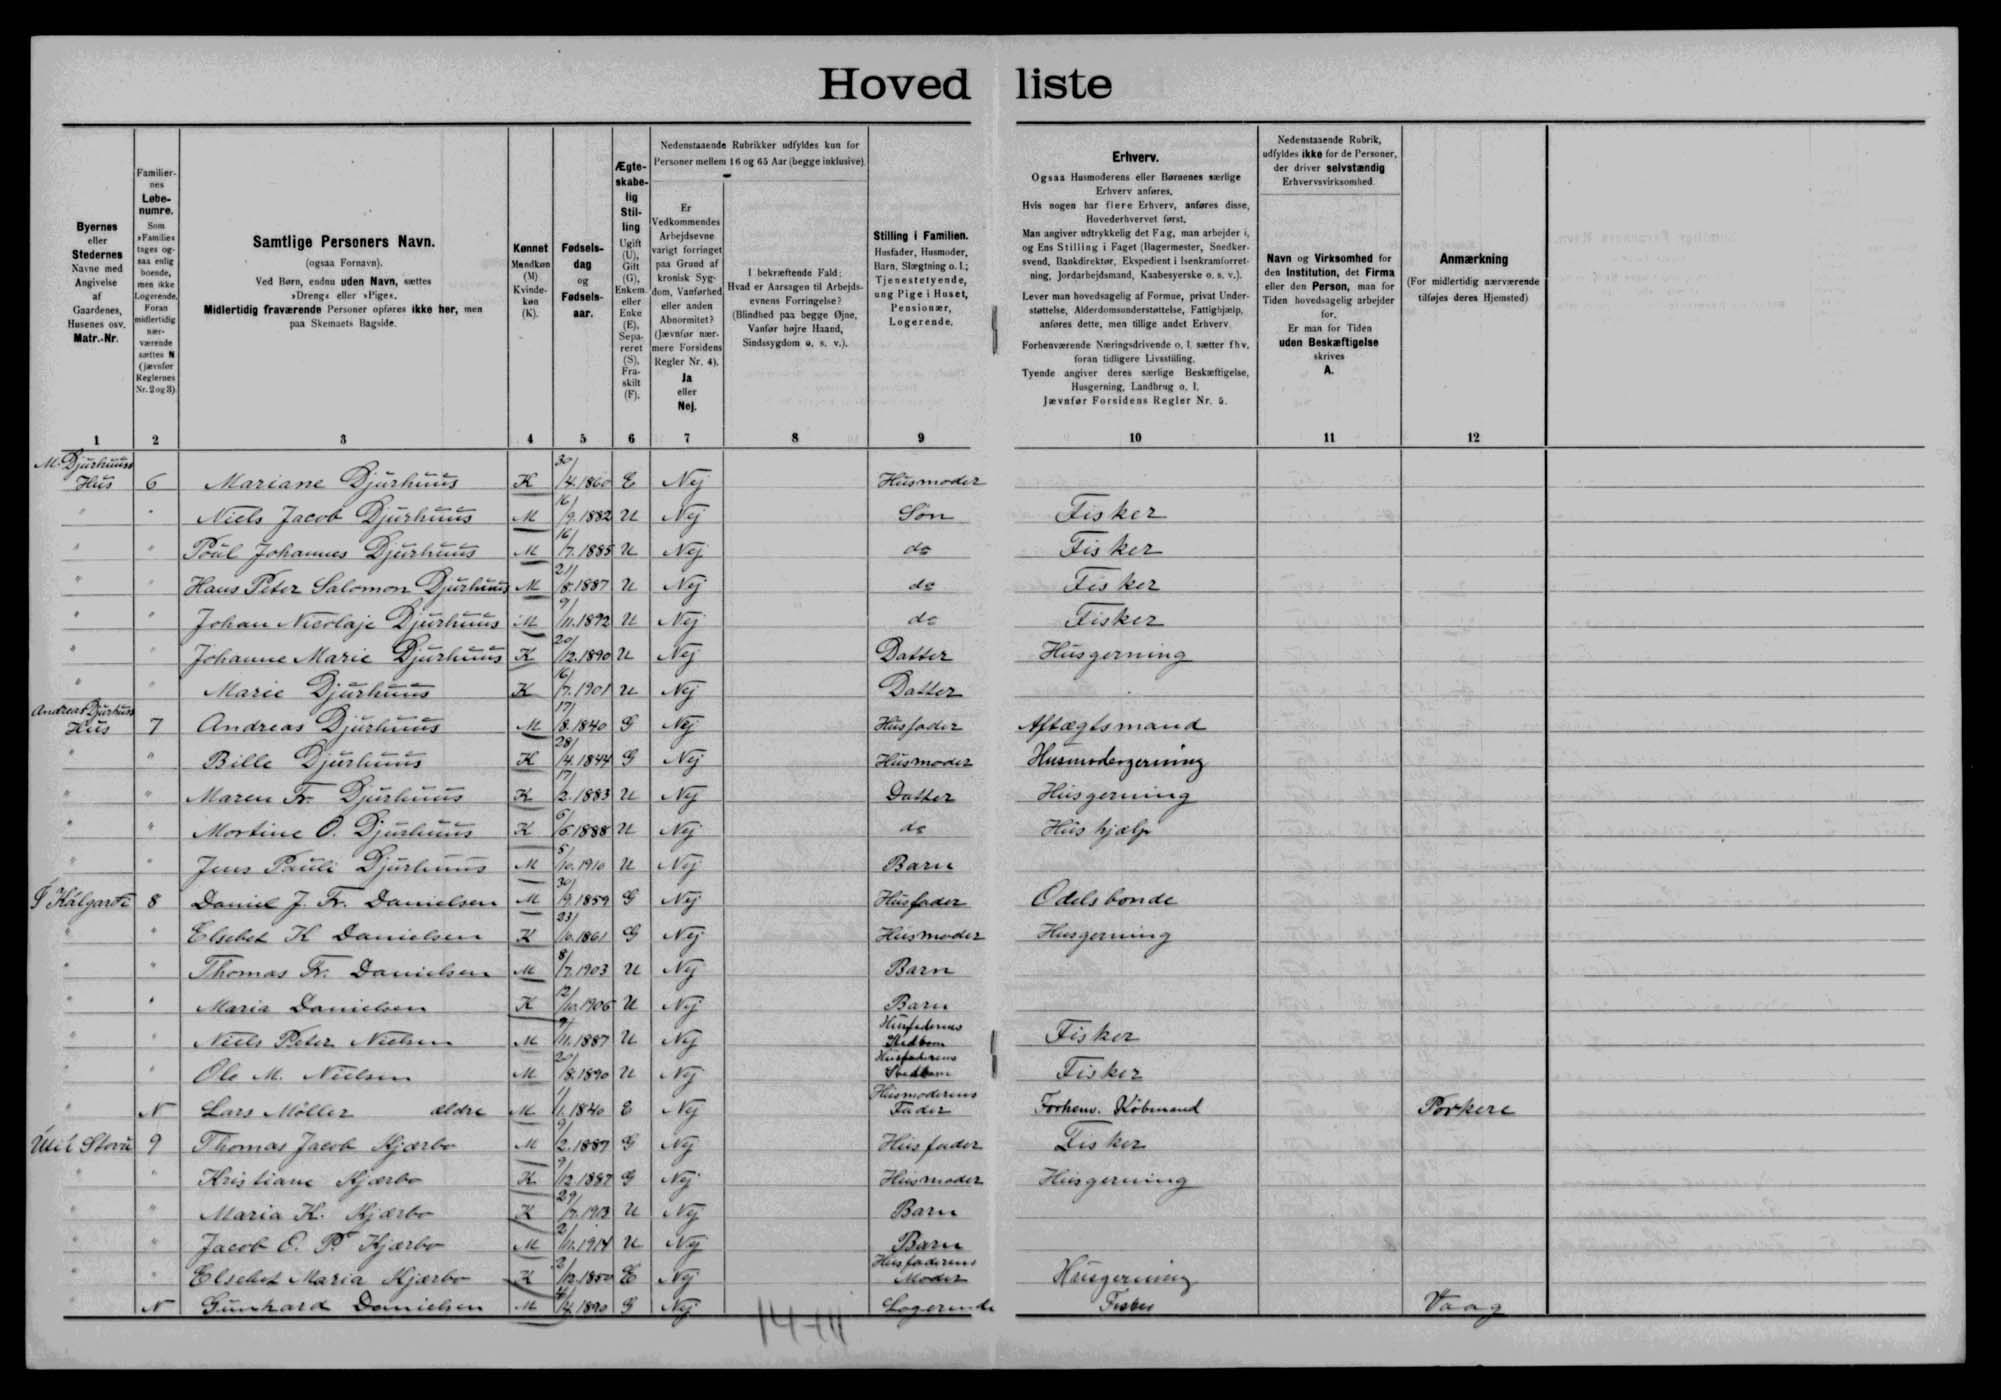 Hovedliste
Byernes eller Stedernes Navne med Angivelse af Gaardenes, Husenes osv. Matr.-Nr.
Familiernes Løbenumre. Som »Familie« tages ogsaa enlig boende, men ikke Logerende. Foran midlertidig nærværende sættes N (jævnfør Reglernes Nr. 2 og 3)
Samtlige Personers Navn.
(ogsaa Fornavn).
Ved Børn, endnu uden Navn, sættes »Dreng« eller »Pige«.
Midlertidig fraværende Personer opføres ikke her, men paa Skemaets Bagside.
Kønnet Mandkøn (M) Kvindekøn (K).
Fødselsdag og Fødselsaar.
Ægteskabelig Stilling Ugift (U), Gift (G), Enkem. eller Enke (E), Separeret (S), Fraskilt (F).
Nedenstaaende Rubrikker udfyldes kun for Personer mellem 16 og 65 Aar (begge inklusive).
Er Vedkommendes Arbejdsevne varigt forringet paa Grund af kronisk Sygdom, Vanførhed eller anden Abnormitet? (Jævnfør nærmere Forsidens Regler Nr. 4). Ja eller Nej.
I bekræftende Fald: Hvad er Aarsagen til Arbejdsevnens Forringelse? (Blindhed paa begge Øjne, Vanfør højre Haand, Sindssygdom o. s. v.).
Stilling i Familien. Husfader, Husmoder, Barn, Slægtning o. l.; Tjenestetyende, ung Pige i Huset, Pensionær, Logerende.
Erhverv.
Ogsaa Husmoderens eller Børnenes særlige Erhverv anføres.
Hvis nogen har flere Erhverv, anføres disse, Hovederhvervet først.
Man angiver udtrykkelig det Fag, man arbejder i, og Ens Stilling i Faget (Bagermester, Snedkersvend, Bankdirektør, Ekspedient i Isenkramforretning, Jordarbejdsmand, Kaabesyerske o. s. v.).
Lever man hovedsagelig af Formue, privat Understøttelse, Alderdomsunderstøttelse, Fattighjælp, anføres dette, men tillige andet Erhverv.
Forhenværende Næringsdrivende o. l. sætter fhv. foran tidligere Livsstilling.
Tyende angiver deres særlige Beskæftigelse, Husgerning, Landbrug o. l.
Jævnfør Forsidens Regler Nr. 5.
Nedenstaaende Rubrik, udfyldes ikke for de Personer, der driver selvstændig Erhvervsvirksomhed.
Navn og Virksomhed for den Institution, det Firma eller den Person, man for Tiden hovedsagelig arbejder for.
Er man for Tiden uden Beskæftigelse skrives A.
Anmærkning
(For midlertidig nærværende tilføjes deres Hjemsted)
1 2 3 4 5 6 7 8 9 10 11 12
M. Djurhuus Hus 6 Mariane Djurhuus K 30/4.1860 E Nej Husmoder
" " Niels Jacob Djurhuus M 16/9.1882 U Nej Søn Fisker
" " Poul Johannes Djurhuus M 16/7.1885 U Nej do Fisker
" " Hans Peter Salomon Djurhuus M 21/8.1887 U Nej do Fisker
" " Johan Nicolaje Djurhuus M 9/11.1892 U Nej do Fisker
" " Johanne Marie Djurhuus K 20/12.1890 U Nej Datter Husgerning
" " Marie Djurhuus K 16/7.1901 U Nej Datter
Andreas Djurhuus Hus 7 Andreas Djurhuus M 17/8.1840 G Nej Husfader Aftægtsmand
" " Bille Djurhuus K 28/4.1844 G Nej Husmoder Husmodergerning
" " Maren Fr. Djurhuus K 17/2.1883 U Nej Datter Husgerning
" " Mortine O. Djurhuus K 6/6.1888 U Nej do Hushjælp
" " Jens Pauli Djurhuus M 5/10.1910 U Nej Barn
Í Kálgarði 8 Daniel J. Fr. Danielsen M 30/9.1859 G Nej Husfader Odelsbonde
" " Elsebet K Danielsen K 23/10.1861 G Nej Husmoder Husgerning
" " Thomas Fr. Danielsen M 8/7.1903 U Nej Barn
" " Maria Danielsen K 12/10.1906 U Nej Barn
" Niels Peter Nielsen M 9/11.1887 U Nej Husfaderens Stedbarn Fisker
" Ole M. Nielsen M 20/8.1890 U Nej Husfaderens Stedbarn Fisker
" N Lars Møller ældre M 1/1.1840 E Nej Husmoderens Fader Forhenv. Købmand Porkere
Stovu 9 Thomas Jacob Kjærbo M 9/2.1887 G Nej Husfader Fisker
" " Kristiane Kjærbo K 9/12.1887 G Nej Husmoder Husgerning
" " Maria K. Kjærbo K 29/7.1913 U Nej Barn
" " Jacob E. P. Kjærbo M 2/11.1914 U Nej Barn
" " Elsebet Maria Kjærbo K 2/12.1850 E Nej Husfaderens Moder Husgerning
" N Gunhard Danielsen M 4/4.1890 G Nej Logerende Fisker Vaag
14+11